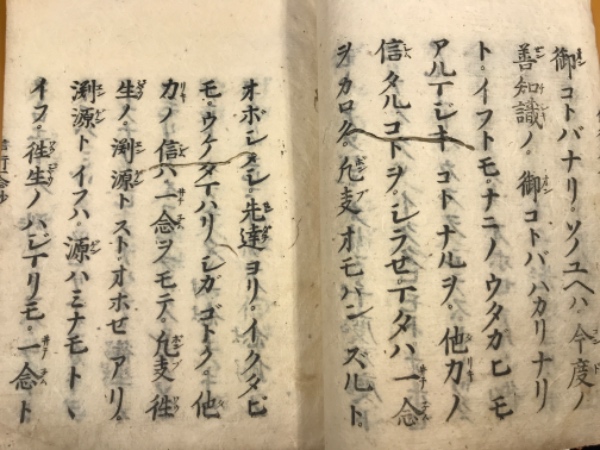 御コトバナリ。ソノユヘハ。今度ノ
善知識ノ。御コトバハカリナリ
ト。イフトモ。ナニノウタガヒモ
アルマジキコトナルヲ。他力ノ
信タルコトヲ。シラセ。マタハ一念
ヲカロク。凢夫オモハンズルト。
オボシメシ。先達ヨリ。イクタビ
モ。ウケタマハリ。シガゴトク。他
力ノ信ハ。一念ヲモテ。凢夫往
生ノ。渕源トスト。オホセアリ。
渕源トイフハ。源ハミナモトヽ
イフ。往生ノハジマリモ。一念ト